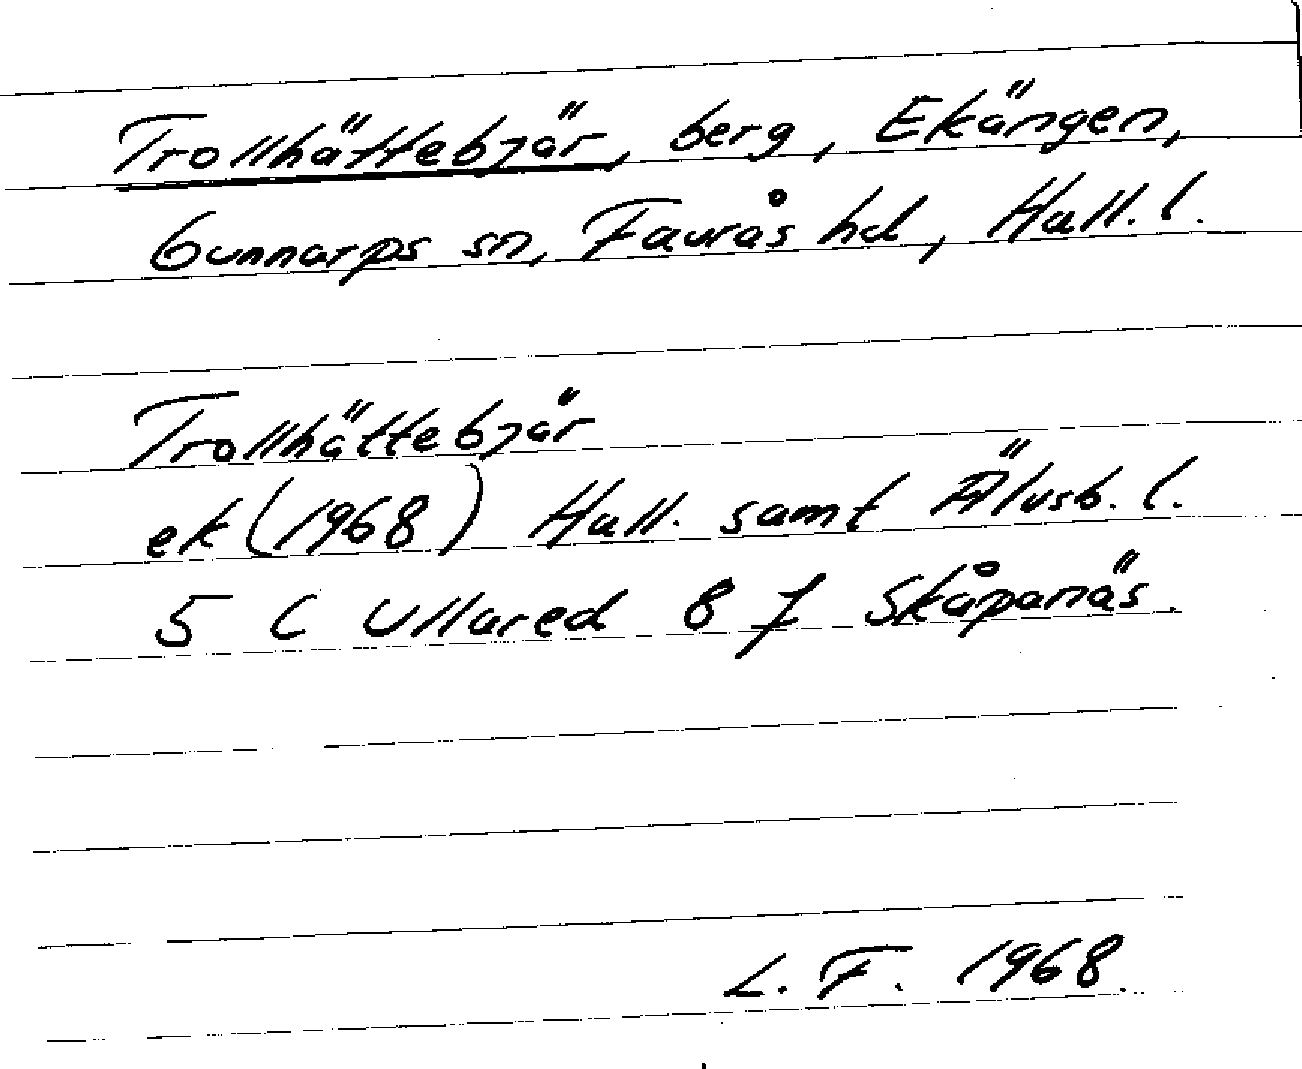 Trollhättebjär, berg, Ekängen,
Gunnarps sn, Faurås hd, Hall. l.
Trollhättebjär
ek (1968) Hall. samt Älvsb. l.
5 C Ullared 8 f Skåpanäs.
L. F. 1968.